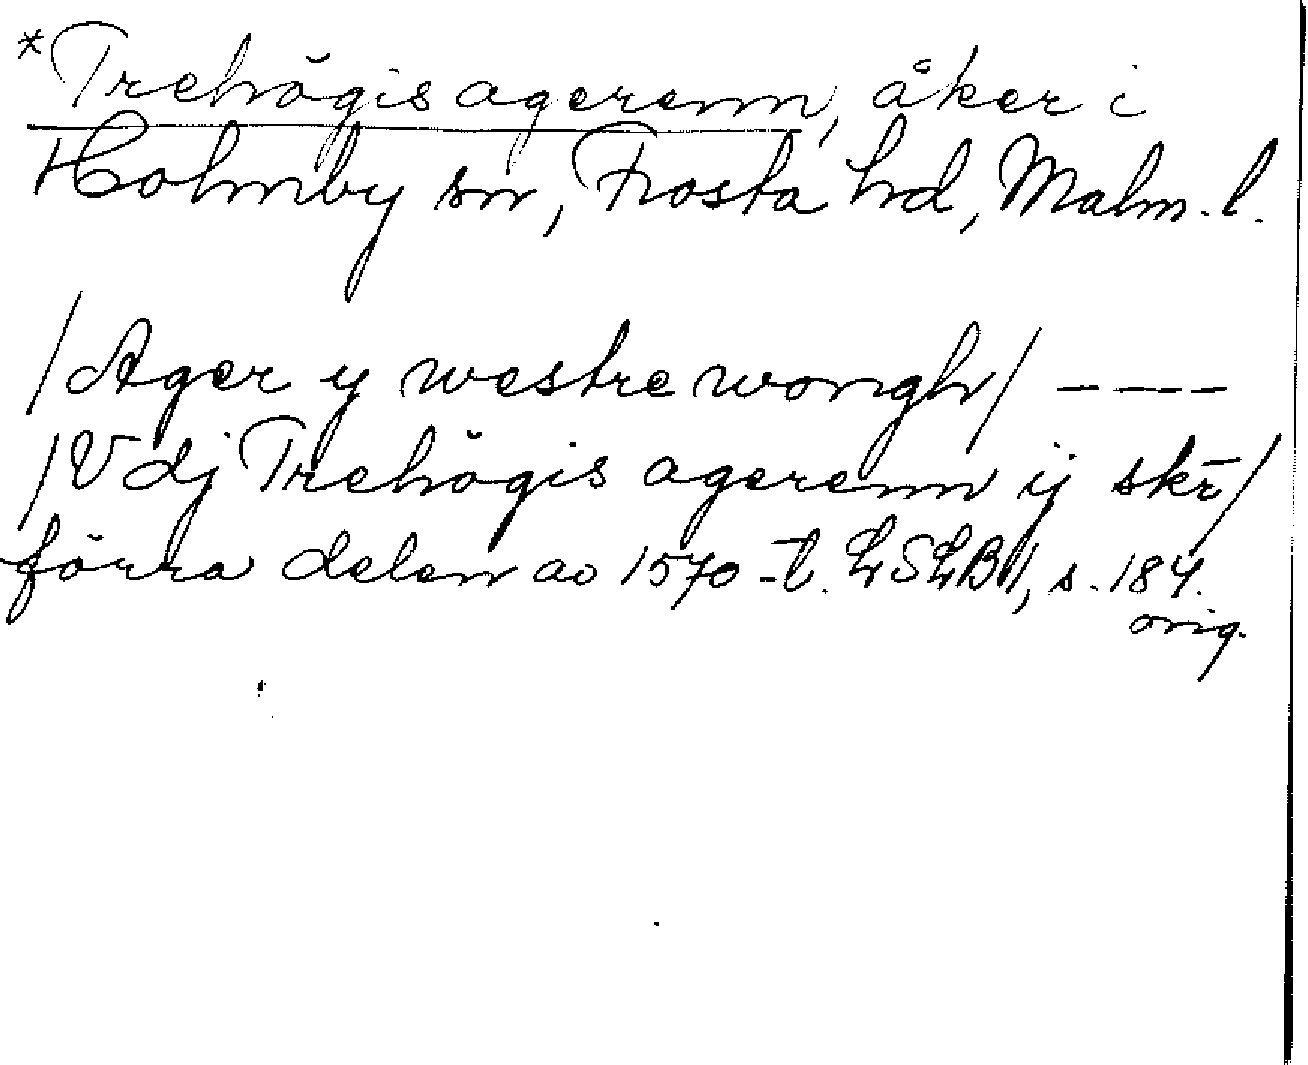 *Trehögis agerenn, åker i
Holmby sn, Frosta hd, Malm. l.
/Ager y westre wongh/ ----
/Vdj Trehögis agerenn ij skr̄/
förra delen av 1570-t. LSLB II, s. 184.
orig.